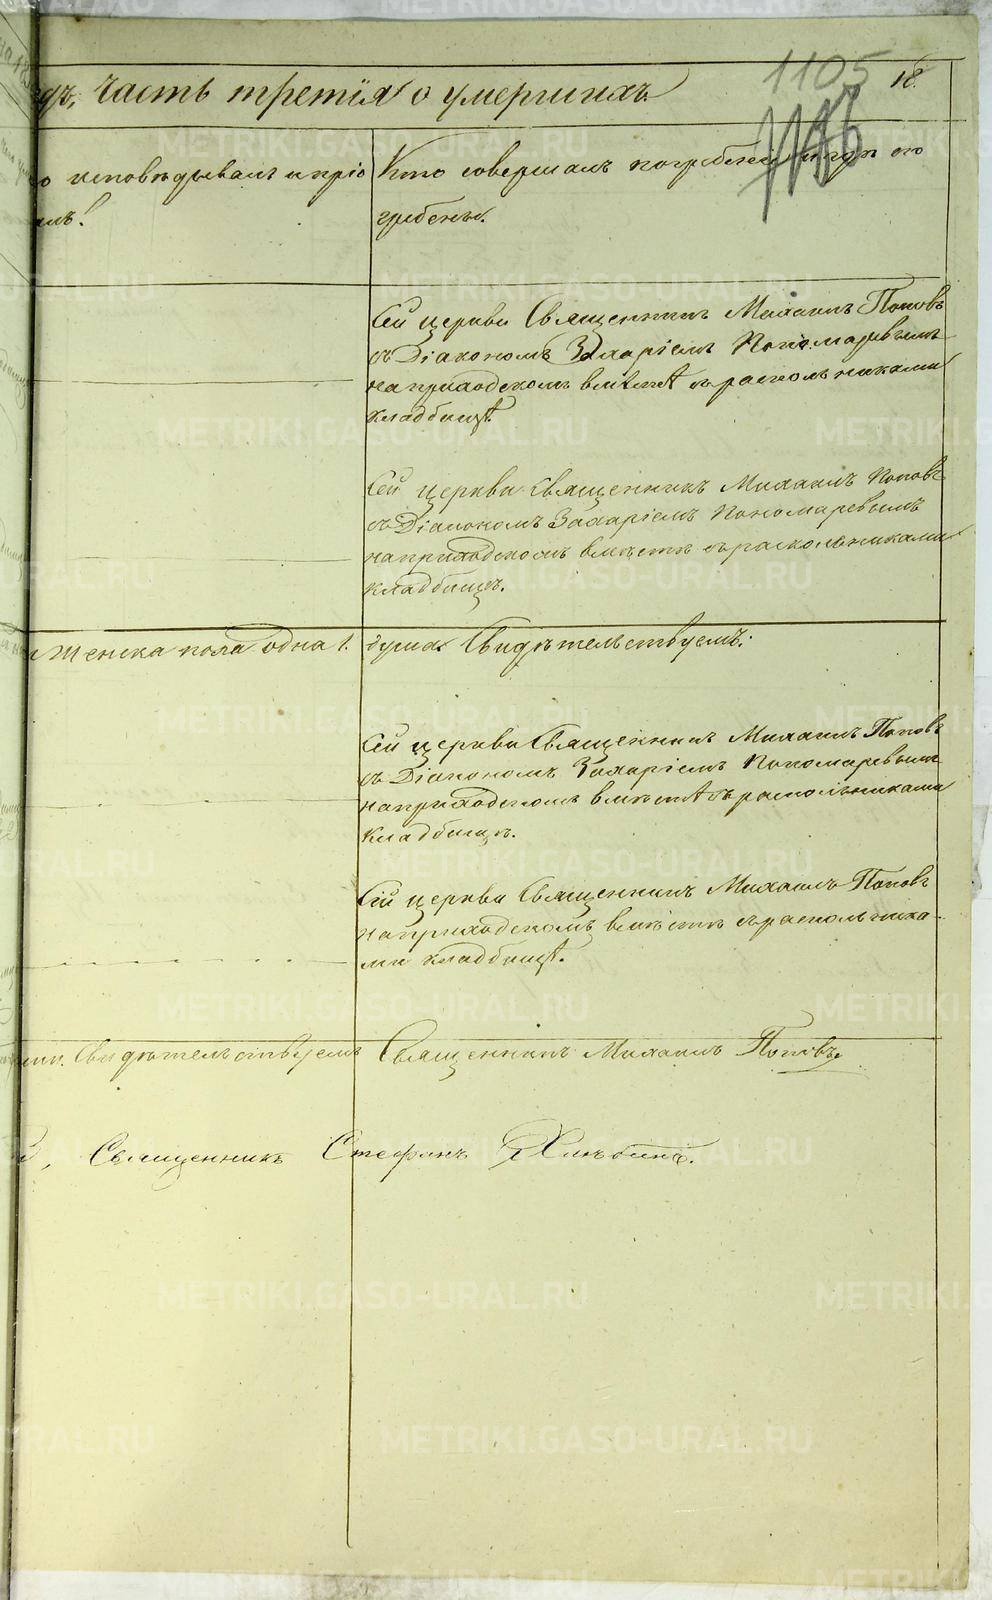 1105
18.
дъ, часть третія о умершихъ.
о исповѣдывалъ и прі
алъ?
Кто совершалъ погребеніе и гдѣ по
гребены.
Сей церкви Священникъ Михаилъ Поповъ
съ Діакономъ Захаріемъ Пономаревымъ
на приходскомъ вмѣстѣ съ раскольниками
кладбищѣ.
Сей церкви Священникъ Михаилъ Поповъ
съ Діакономъ Захаріемъ Пономаревымъ
на приходскомъ вмѣстѣ съ раскольниками
кладбищѣ.
Женска пола одна 1. душа. Свидѣтельствуемъ:
Сей церкви Священникъ Михаилъ Поповъ
съ Діакономъ Захаріемъ Пономаревымъ
на приходскомъ вмѣстѣ съ раскольниками
кладбищѣ.
Сей церкви Священникъ Михаилъ Поповъ
на приходскомъ вмѣстѣ съ раскольника-
ми кладбищѣ.
Свидѣтельствуемъ Священникъ Михаилъ Поповъ
Священникъ Стефанъ Хлѣбинъ.
METRIKI.GASO-URAL.RU